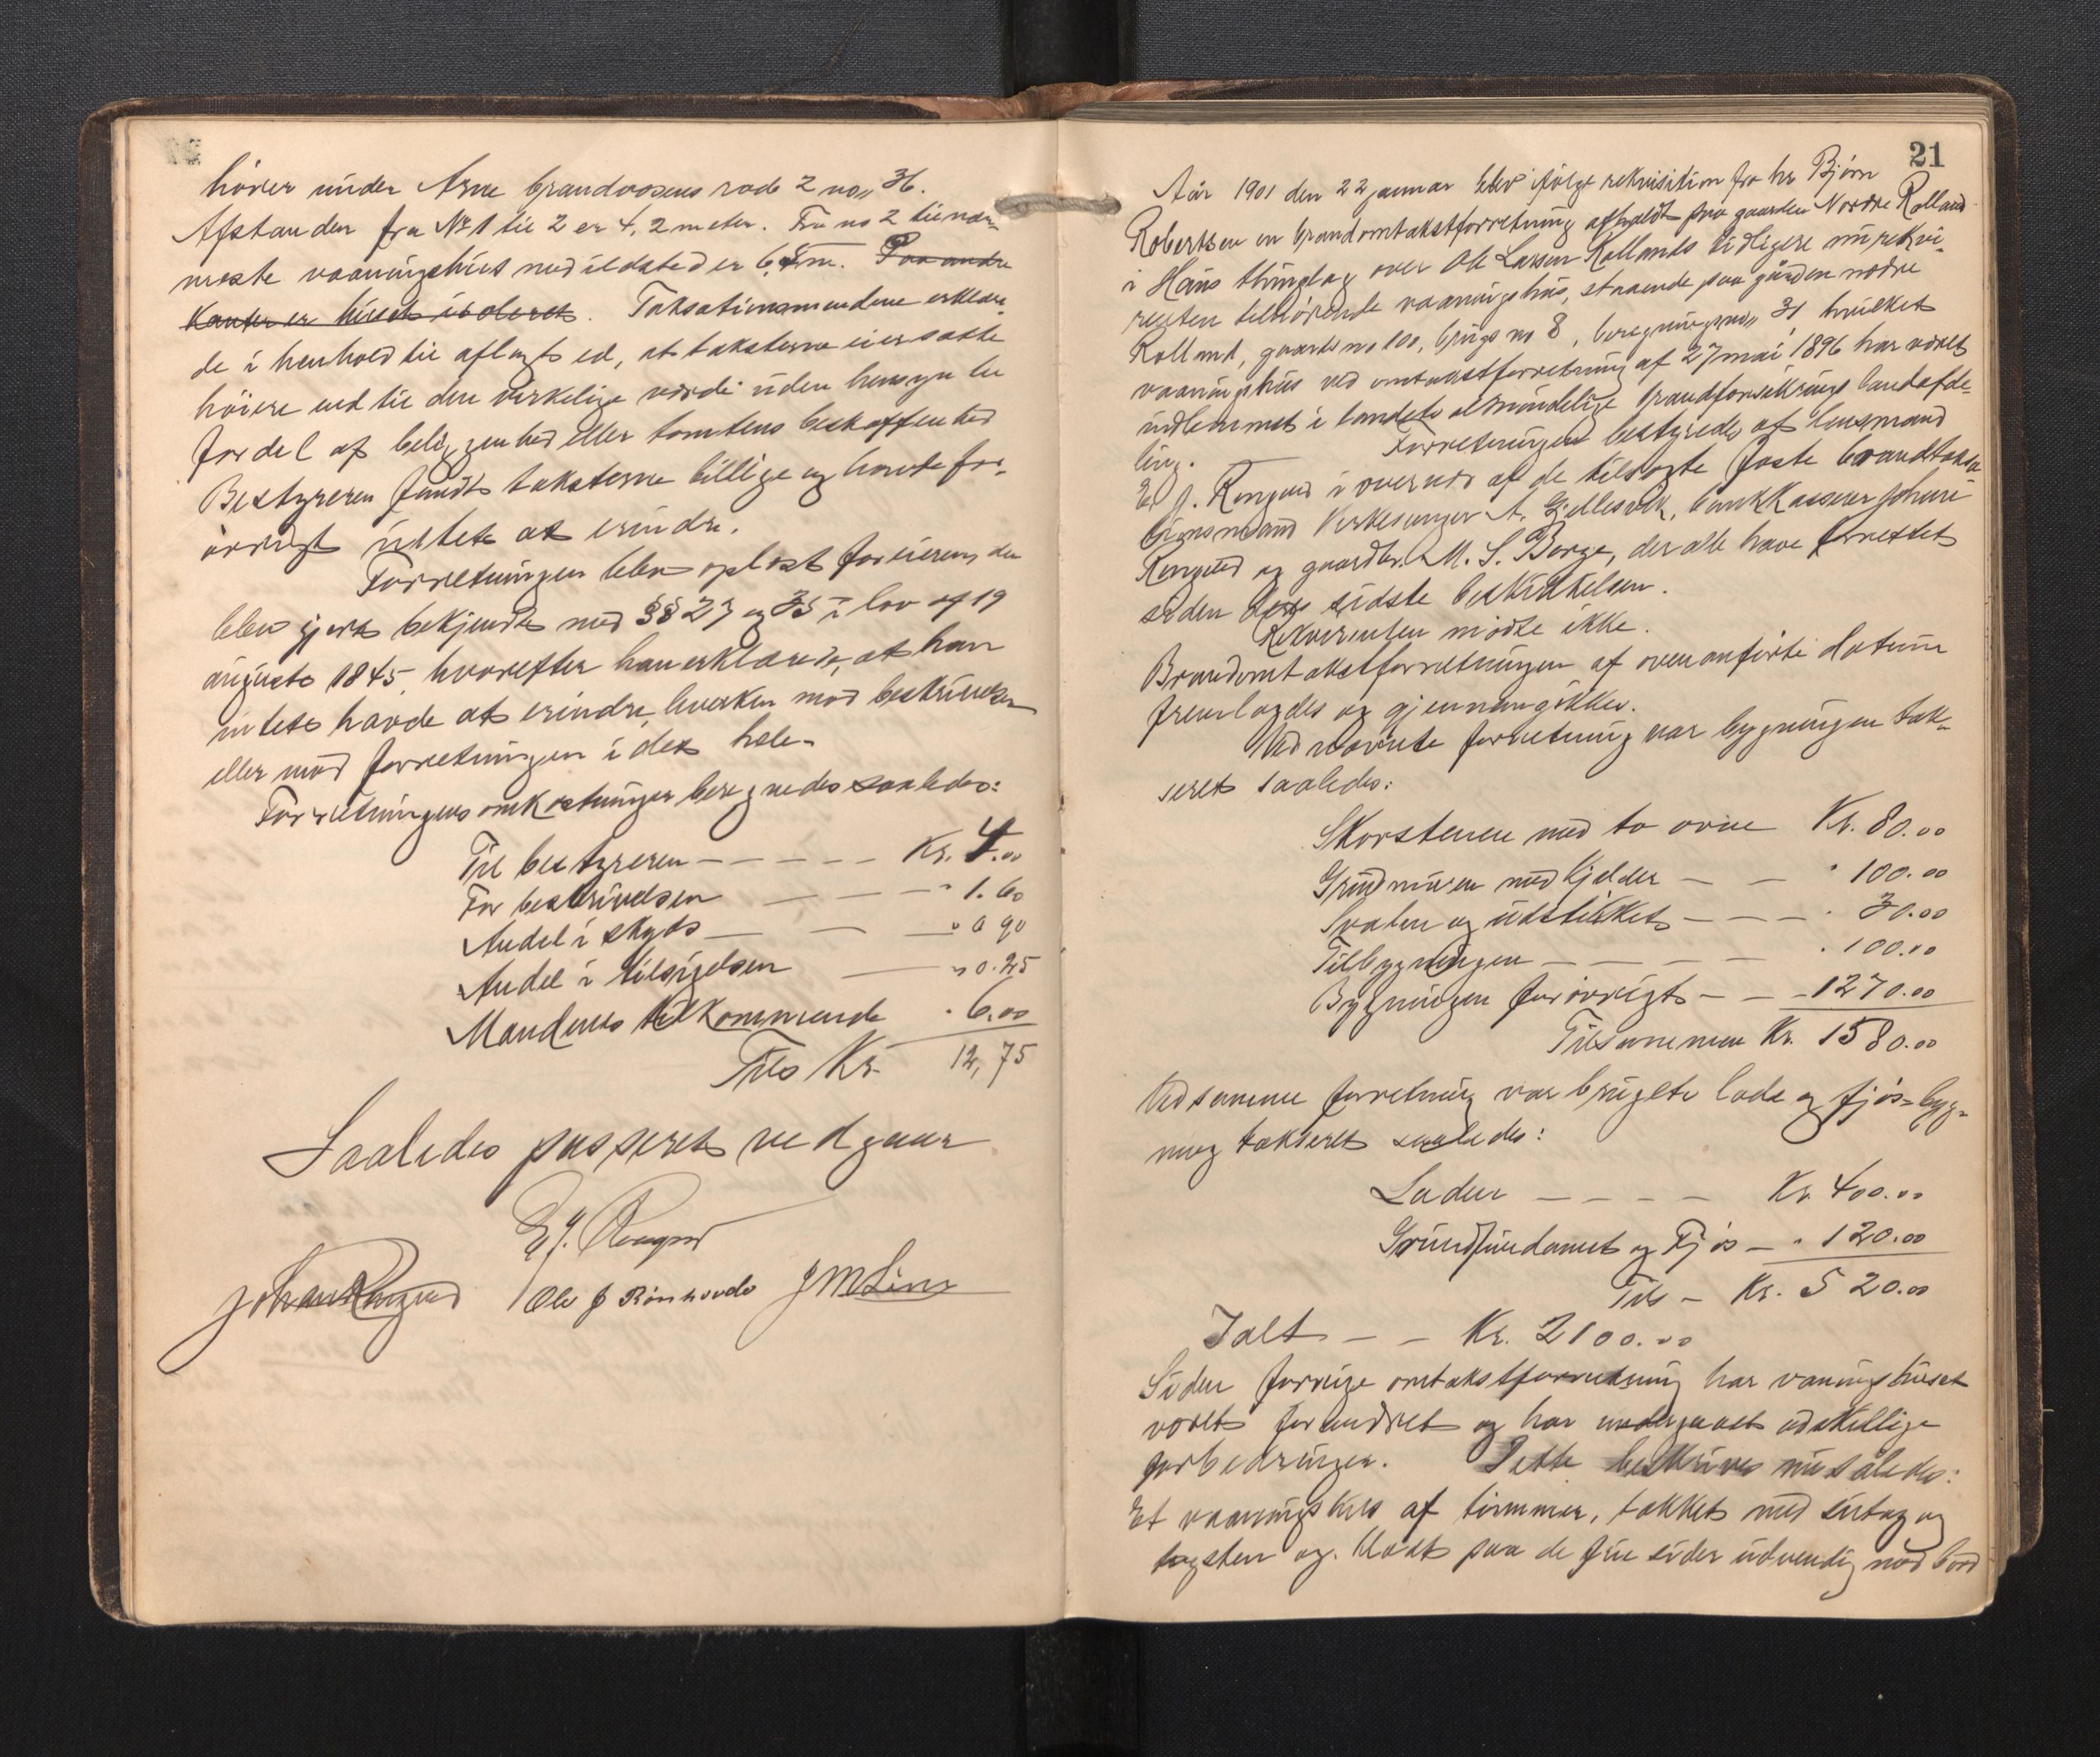 hører under Arne brandvæsens rode 2 no. 36.
Afstanden fra No 1 til 2 er 4,2 meter. Fra no 2 til nær-
meste vaaningshus med ildsted er 6,5 m. Paa andre
kanter er huset isoleret. Taksationsmændene erklære-
de i henhold til aflagt ed, at taksterne ei er satte
høiere end til den virkelige værdi uden hensyn til
fordel af beliggenhed eller tomtens beskaffenhed
Bestyreren fandt taksterne billige og havde for-
øvrigt intet at erindre.
Forretningen blev oplæst for eieren, der
blev gjort bekjendt med §§ 27 og 35 i lov af 19
august 1845, hvorefter han erklærede, at han
intet havde at erindre, hverken mod beskrivelsen
eller mod forretningen i det hele.
Forretningens omkostninger beregnedes saaledes:
Til bestyreren ‒ ‒ ‒ ‒ ‒ Kr. 4.00
For beskrivelsen ‒ ‒ ‒ " 1.60
Andel i skyds ‒ ‒ ‒ " 0 90
Andel i tilsigelsen ‒ " 0.25
Mændenes tilkommende " 6.00
Tils Kr. 12,75
Saaledes passeret vedgaar
E. J. Ringsed
Johan Ringsed Ole J Rönhovde J M Lien
21
Aar 1901 den 22 januar blev ifølge rekvisition fra hr Bjørn
Robertsen en brandomtakstforretning afholdt paa gaarden Nordre Rolland
i Haus thinglag over Ole Larsen Rollands tidligere nu rekvi-
renten tilhørende vaaningshus, staaende paa gården nordre
Rolland, gaards no 100, brugs no 8, beregningsno. 31 hvilket
vaaningshus ved omtakstforretning af 27 mai 1896 har været
indlemmet i landets almindelige brandforsikrings landafde-
ling. Forretningen bestyredes af lensmand
E. J. Ringsed i overvær af de tilsagte faste brandtaksa-
tionsmænd A. Gjellesvik, bankkasserer Johan
Ringsed og gaardbr. M. S. Borge, der alle have forrettet
siden deres sidste beskikkelsen.
Rekvirenten mødte ikke.
Brandomtakstforretningen af ovenanførte datum
fremlagdes og gjennemgikkes.
Ved nævnte forretning var bygningen tak-
seret saaledes:
Skorstenen med to ovne Kr. 80.00
Grundmuren med kjelder ‒ ‒ " 100.00
Svalen og udstikket ‒ ‒ ‒ " 30.00
Tilbygningen ‒ ‒ ‒ ‒ " 100.00
Bygningen forøvrigt ‒ ‒ ‒ 1270.00
Tilsammen Kr. 1580.00
Ved samme forretning var brugets lade og fjøs-byg-
ning takseret saaledes:
Laden ‒ ‒ ‒ ‒ Kr. 400.00
Grundfundament og Fjøs ‒ " 120.00
Tils ‒ Kr. 520.00
Ialt ‒ ‒ Kr. 2100.00
Siden forrige omtakstforretning har vaningshuset
været forandret og har undergaaet adskillige
forbedringer. Dette beskrives nu således:
Et vaaningshus af tømmer, tækket med sutag og
tagsten og klædt paa de fire sider udvendig med bord